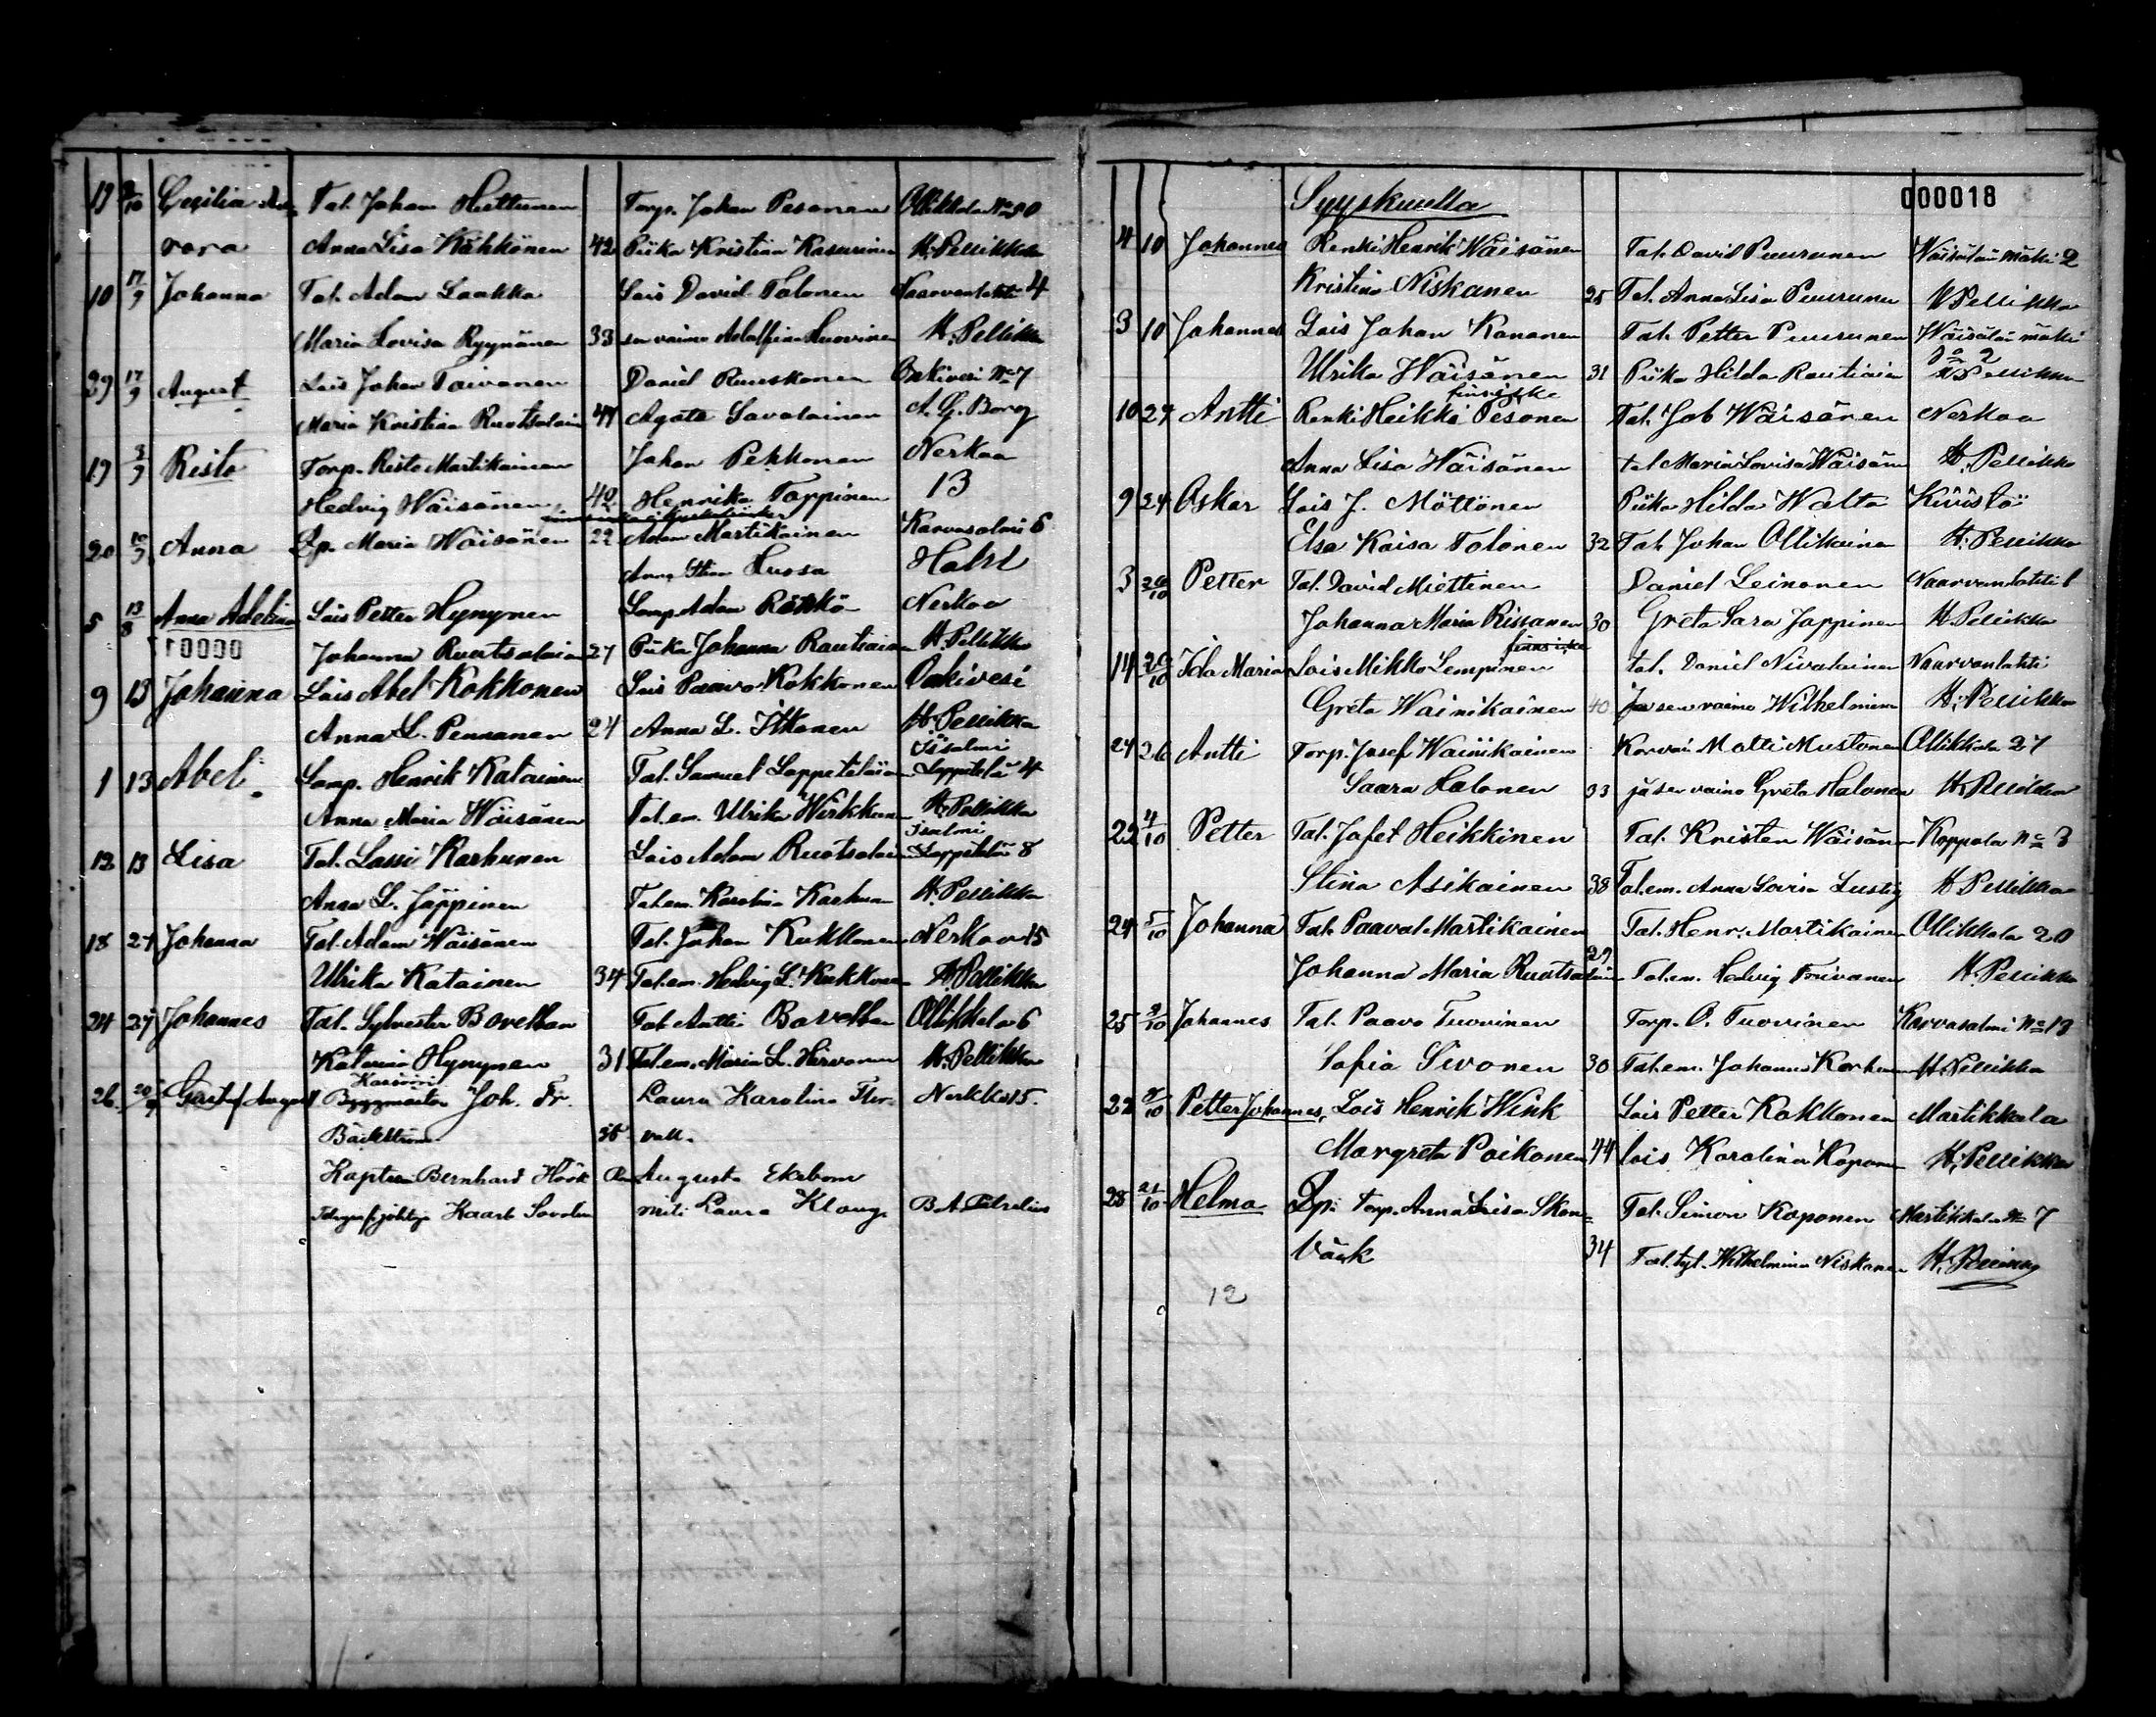 19 9/10 Cecilia Au- Tal. Johan Huttunen Torp. Johan Pesonen Ollikkala No 20
rora Anna Lisa Kähkönen 42 Piika Kristiina Kasurinen H. Pellikka
10 17/9 Johanna Tal. Adam Laakko Lois David Tolonen Naarvanlahti 4
Maria Lovisa Ryynänen 33 sen vaimo Adolfina Huovinen H. Pellikka
29 17/9 August Lois Johan Taivanen Daniel Ruuskanen Onkivesi No 7
Maria Kristiina Ruotsalain 44 Agata Savolainen A. G. Borg
19 3/9 Risto Torp. Risto Martikainen Johan Pekkonen Nerkoo
Hedvig Wäisänen 40 Henrika Tappinen 13
20 10/9 Anna Lp. Maria Wäisänen 22 Adam Martikainen Karvasalmi 6
Anna Stina Hussa
5 13/8 Anna Adelina Lois Petter Hynynen Lamp. Adam Rönkö Nerkoo
Johanna Ruotsalainen 27 Piika Johanna Rautiainen H. Pellikka
9 13 Johanna Lois Abel Kokkonen Lois Paavo Kokkonen Onkivesi
Anna L. Pennanen 24 Anna L. Itkonen H. Pellikka
Iisalmi
1 13 Abel Lamp. Henrik Katainen Tal. Samuel Lappeteläinen Lappetelä 4
Anna Maria Wäisänen Tal. em. Ulrika Wirkkunen H. Pellikka
Iisalmi
12 13 Lisa Tal. Lassi Karhunen Lois Adam Ruotsalain Lappetelä 8
Anna L. Jäppinen Tal. em. Karolina Karhunen H. Pellikka
18 27 Johanna Tal. Adam Wäisänen Tal. Johan Kukkonen Nerkoo 15
Ulrika Katainen 34 Tal. em. Hedvig L. Kukkonen H. Pellikka
24 27 Johannes Tal. Sylvester Borellan Tal. Antti Borellan Ollikkala 6
Katarina Hynynen 31 Tal. em. Maria L. Hirvonen H. Pellikka
26 20/9 Gustaf August Byggmästar Joh. Fr. Laura Karolina Nerkko 15.
Bäckström 36
Kapten Bernhard Höök Augusta Ekebom
Kaarlo Savolin Laura Klouge B. A.
000018
Syyskuulla
4 10 Johannes Renki Henrik Wäisänen Tal. David Puurunen Wäisälänmäki 2
Kristina Niskanen 25 Tal. Anna Lisa Puurunen H. Pellikka
3 10 Johannes Lois Johan Kononen Tal. Petter Puurunen Wäisälänmäki
No 2
Ulrika Wäisänen 31 Piika Hilda Rautiain H. Pellikka
10 24 Antti Renki Heikki Pesonen Tal. Job Wäisänen Nerkoo
Anna Lisa Wäisänen tal. Maria Lovisa Wäisän H. Pellikka
9 24 Oskar Lois J. Möttönen Piika Hilda Walta Kiviistö
Elsa Kaisa Tolonen 32 Tal. Johan Ollikaine H. Pellikka
3 26/10 Petter Tal. David Miettinen Daniel Leinonen Naarvanlahti 6
Johanna Maria Rissanen 30 Greta Sara Jappinen H. Pellikka
14 26/10 Ida Maria Lois Mikko Lempinen tal. Daniel Nivalainen Naarvanlahti
Greta Wainikainen 40 ja sen vaimo Wilhelmiina H. Pellikka
24 26 Antti Torp. Josef Wainikainen Korvari Matti Mustonen Ollikkala 27
Saara Halonen 33 ja sen vaimo Greta Halonen H. Pellikka
22 4/10 Petter Tal. Jafet Heikkinen Tal. Kristen Wäisänen Koppala No 3
Stina Asikainen 38 Tal. em. Anna Lovisa Lustig H. Pellikka
24 5/10 Johanna Tal. Paaval Martikainen Tal. Henr. Martikainen Ollikkala 20
Johanna Maria Ruotsalain 29 Tal. em. Hedvig Toivanen H. Pellikka
25 9/10 Johannes Tal. Paavo Tuovinen Torp. O. Tuovinen Karvasalmi No 13
Sofia Sivonen 30 Tal. em. Johanna Korhonen H. Pellikka
22 9/10 Petter Johannes Lois Henrik Wink Lois Petter Kokkonen Martikkala
Margreta Poikonen 44 lois Karolina Koponen H. Pellikka
28 21/10 Helma Lp. torp. Anna Lisa Skon= Tal. Simon Koponen Martikkala No 7
väck 34 Tal. tyt. Wilhelmina Niskanen
12